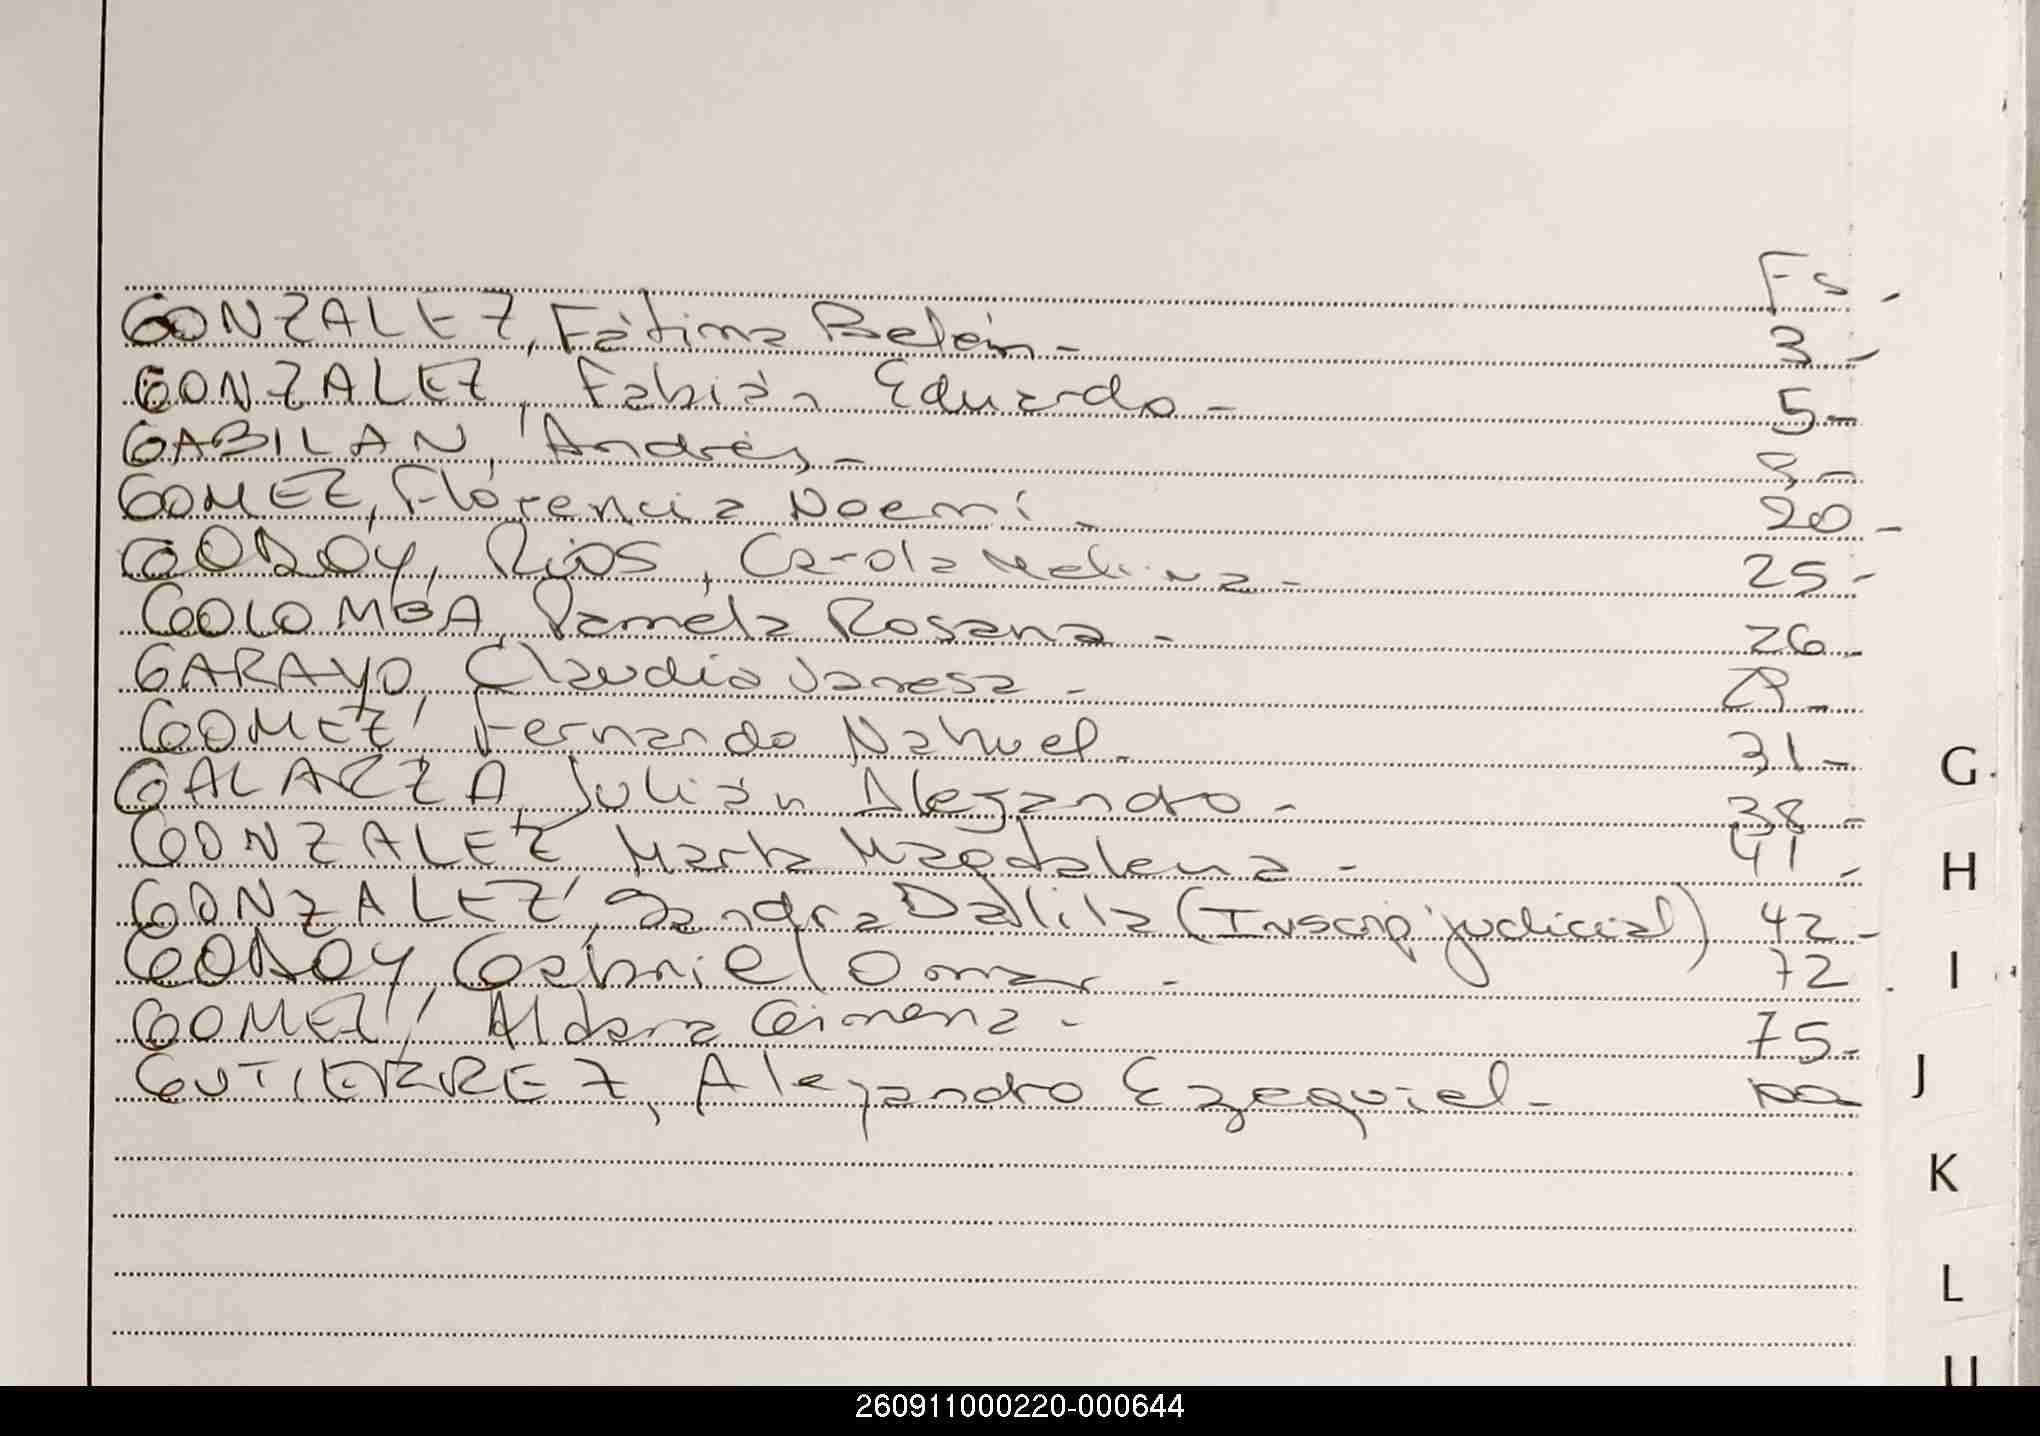 Fs.
GONZALEZ, Fátima Belén - 3 -
GONZALEZ, Fabián Eduardo - 5 -
GABILAN, Andrés -
GOMEZ, Florencia Noemí - 20 -
GODOY, Rios, Carola Melina - 25 -
GOLOMBA, Pamela Rosana - 26 -
GARAYO, Claudia Vanesa - 29 -
GOMEZ, Fernando Nahuel - 31 -
GALARZA, Julián Alejandro - 38 -
GONZALEZ, Marta Magdalena - 41 -
GONZALEZ, Sandra Dalila (Inscrip judicial) 42 -
GODOY, Gabriel Omar - 72
GOMEZ, Aldana Gimena - 75 -
GUTIERREZ, Alejandro Ezequiel -
G
H
I
J
K
L
260911000220-000644